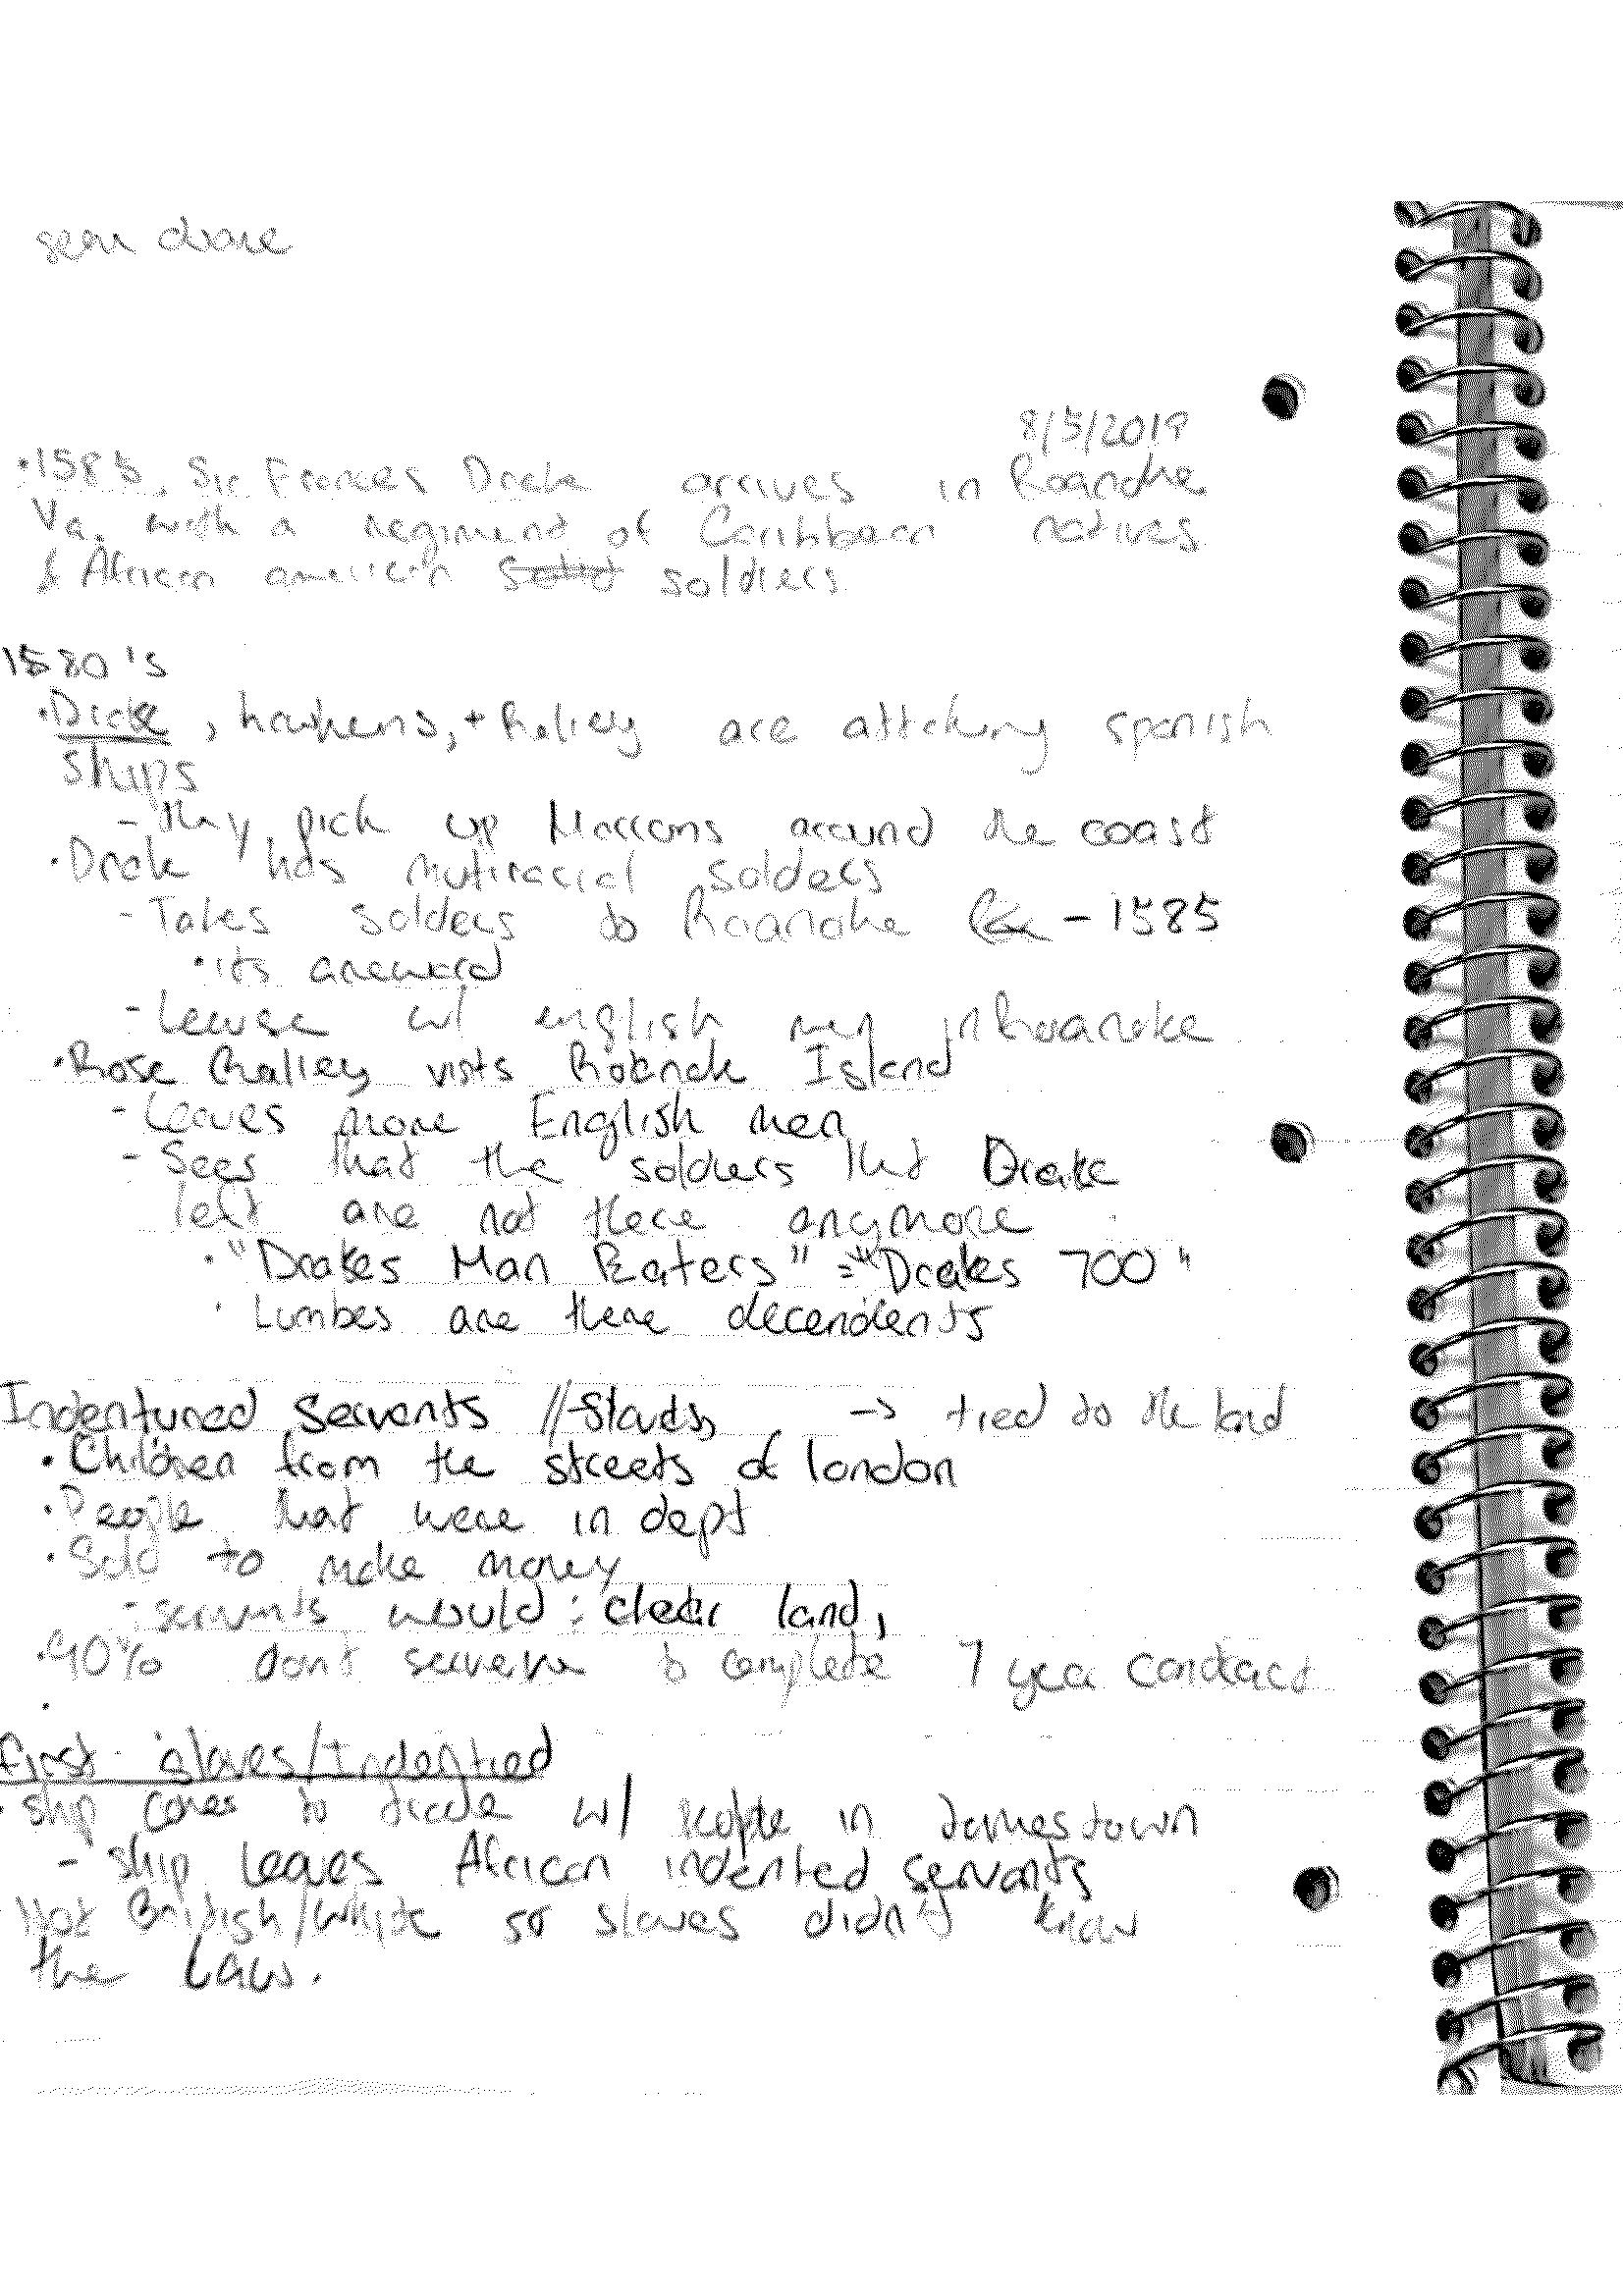 8/5/2019
·1585, Sir Frances Drake arrives in Roanoke
Va. with a regimend of Caribbean natives
& African american soldiers.
1580's
·Drake, hawkens, + Raliey are attcking spanish
ships
- they pick up Marrons around the coast
·Drake has mutiracial solders
- Takes solders to Roanoke - 1585
·its
- Leavse w/ english men in Roanoke
·Rose Ralley vists Roanok Island
- Leaves more English men
- Sees that the soldiers that Drake
left are not there anymore
· "Drakes Man Eaters" = "Drakes 700"
· Lumbes are there decendents
Indentured Servents // Slaves, → tied to the land
· Children from the streets of london
· People that were in dept
· Sold to make money
- servents would : clear land,
· 90% dont to complete 7 year contract
·
First slaves/Indentied
· ship comes to trade w/ people in Jamestown
- ship leaves African indented servants
Not British/White so slaves didn't know
the Law.